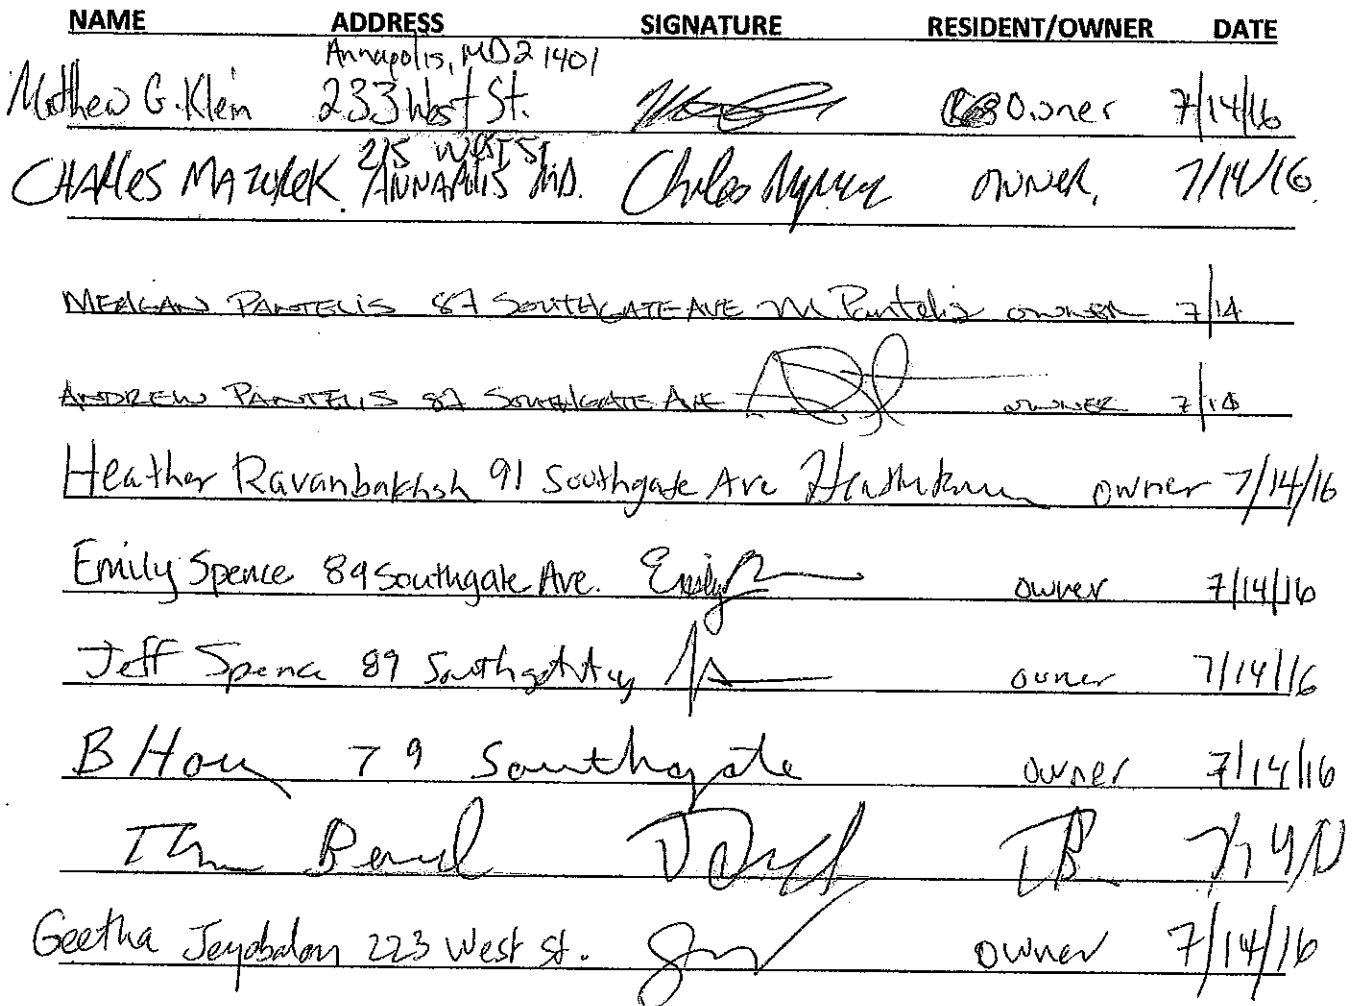 NAME ADDRESS SIGNATURE RESIDENT/OWNER DATE
Annapolis, MD 21401
Matthew G. Klein 233 West St. Owner 7/14/16
215 WEST ST
CHARLES MAZUREK. ANNAPOLIS MD. OWNER. 7/14/16.
MEAGAN PANTELIS 87 SOUTHGATE AVE M Pantelis OWNER 7/14
ANDREW PANTELIS 87 SOUTHGATE AVE OWNER 7/14
Heather Ravanbakhsh 91 Southgate Ave owner 7/14/16
Emily Spence 89 Southgate Ave. Emily owner 7/14/16
Jeff Spence 89 Southgate owner 7/14/16
B 79 Southgate owner 7/14/16
TB
Geetha Jeyabalan 223 West St. owner 7/14/16